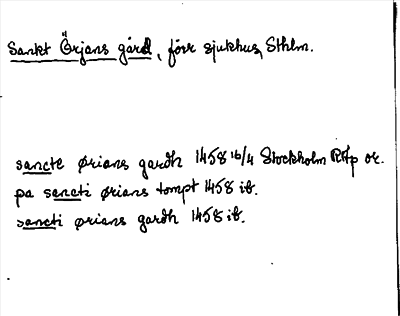 Sankt Örjans gård, förr sjukhus, Sthlm.
sancte ørians gardh 1458 16/4 Stockholm RAp or.
pa sancti ørians tompt 1458 ib.
sancti ørians gardh 1458 ib.